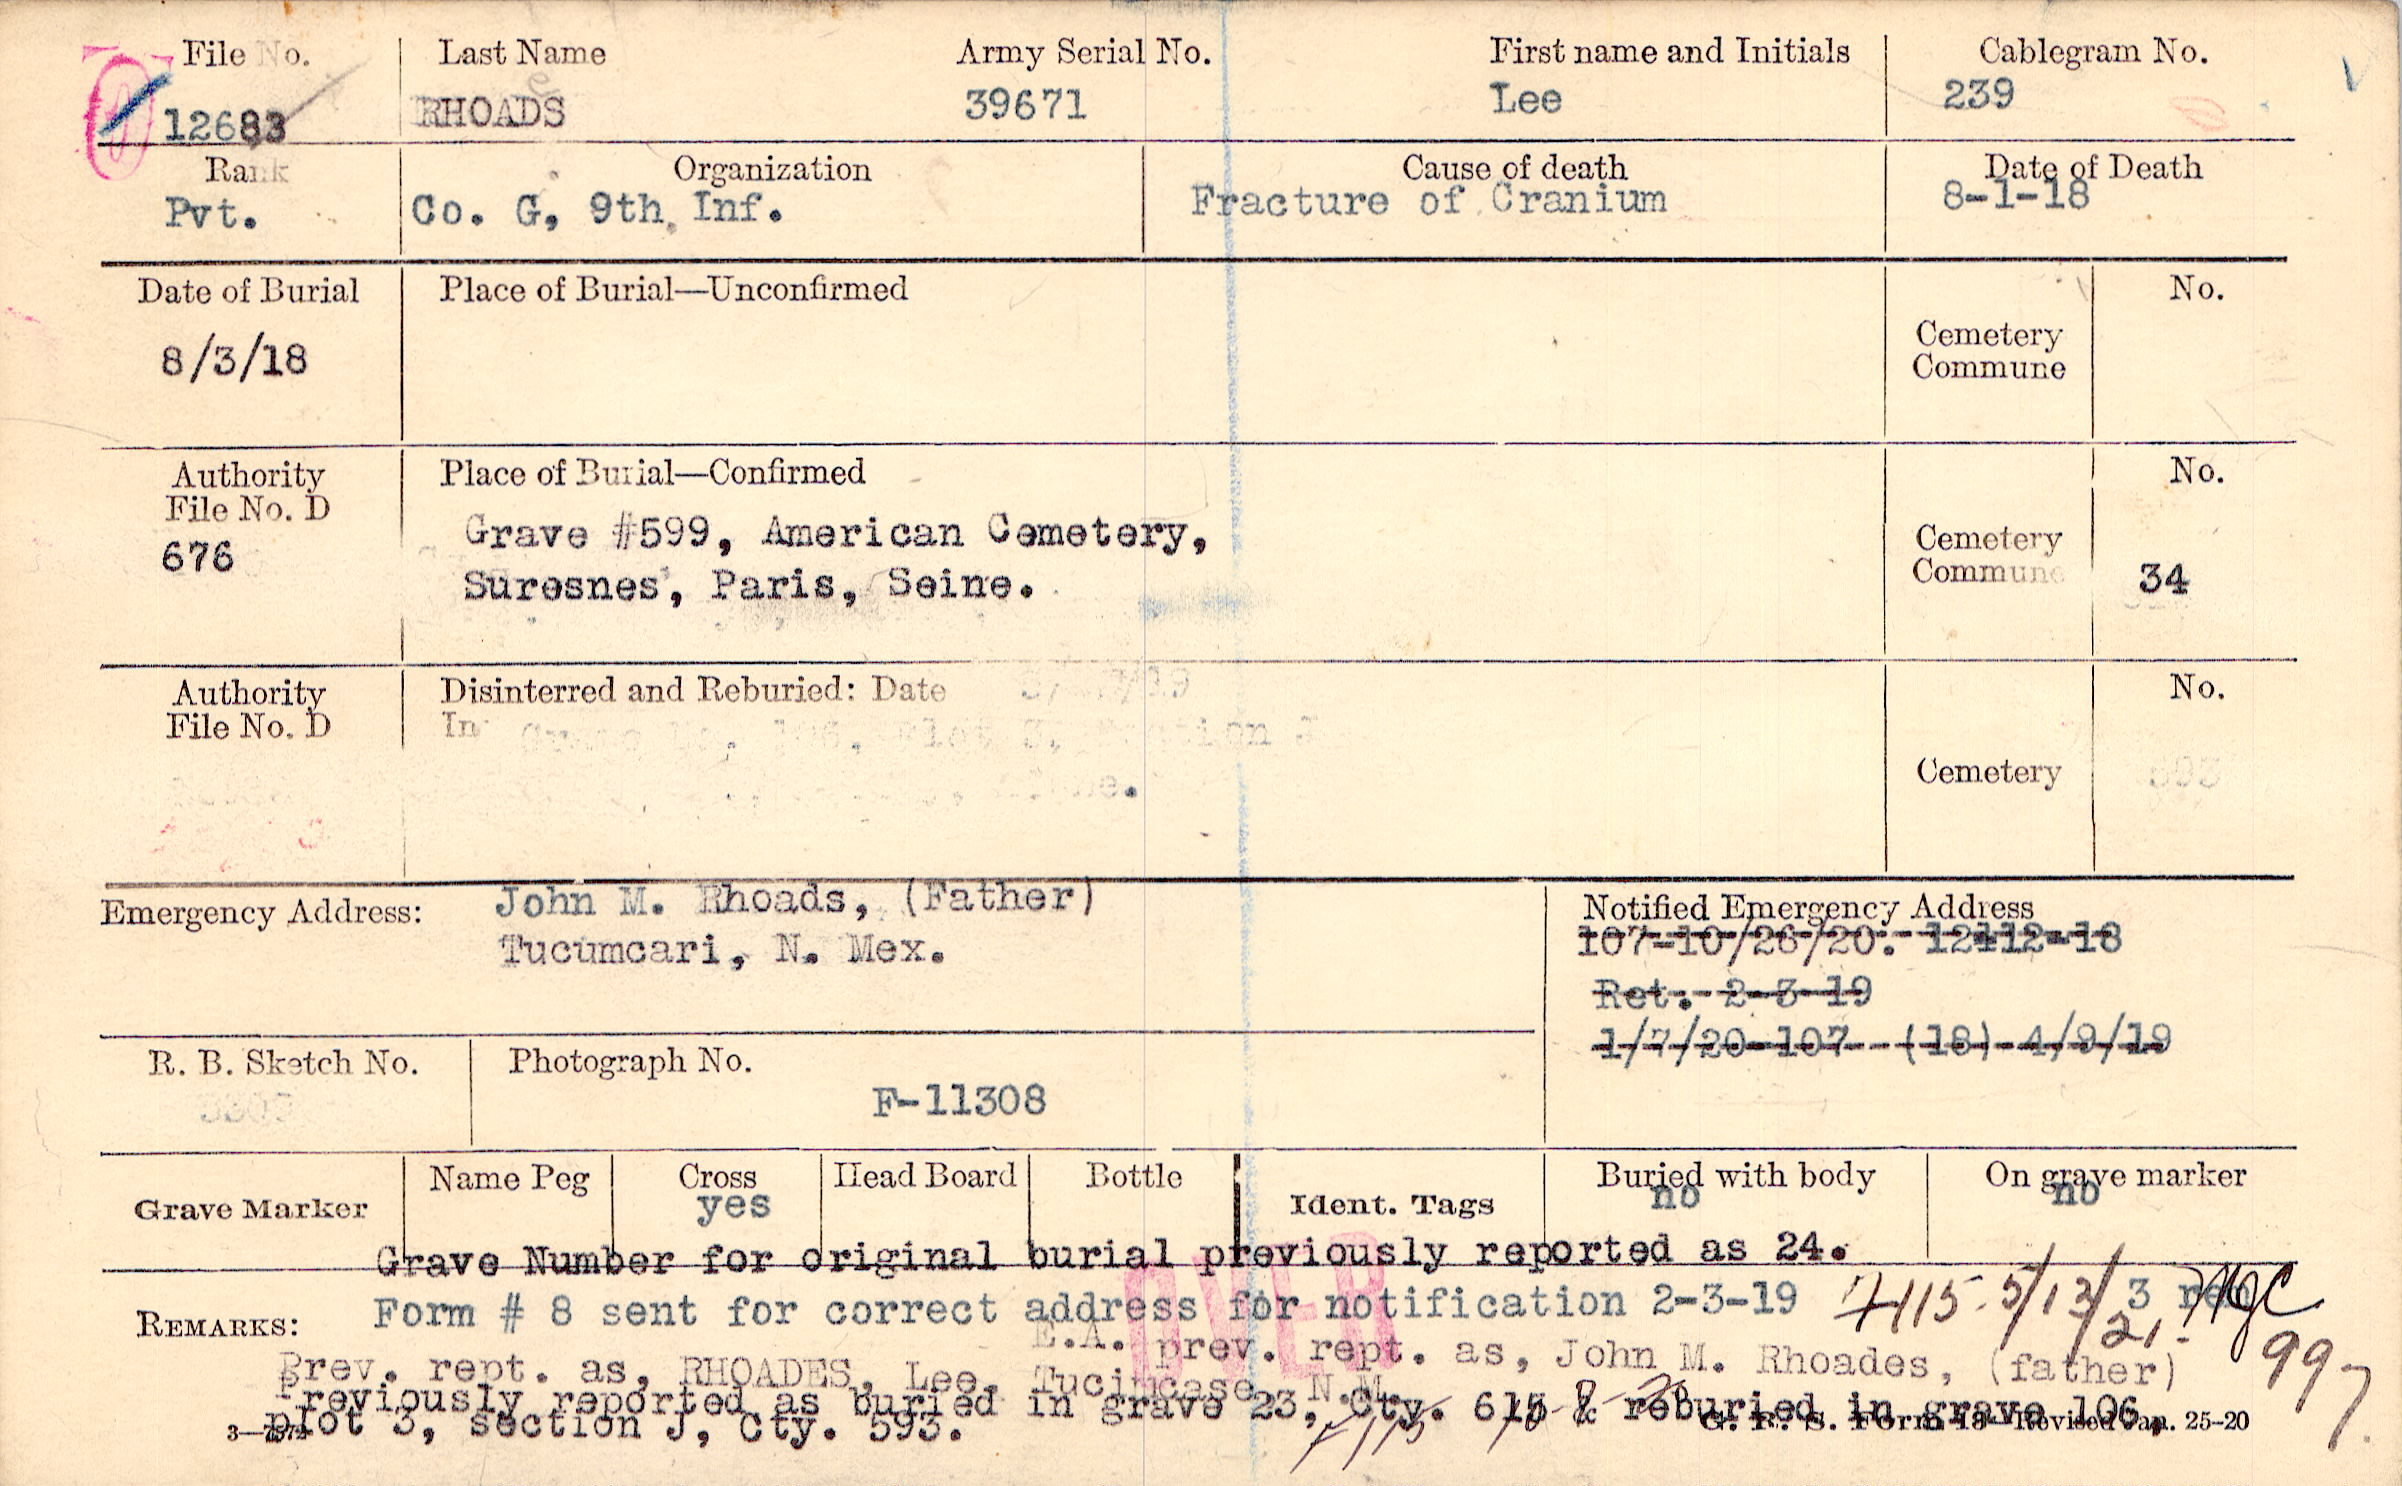 File No. Last Name Army Serial No. First name and Initials Cablegram No.
12683 RHOADS 39671 Lee 239
Rank Organization Cause of death Date of Death
Pvt. Co. G, 9th Inf. Fracture of Cranium 8-1-18
Date of Burial Place of Burial—Unconfirmed No.
8/3/18 Cemetery
Commune
Authority Place of Burial—Confirmed No.
File No. D
676 Grave #599, American Cemetery, Cemetery
Suresnes, Paris, Seine. Commune 34
Authority Disinterred and Reburied: Date No.
File No. D In
Cemetery 593
Emergency Address: John M. Rhoads, (Father)
Tucumcari, N. Mex.
Notified Emergency Address
107-10/26/20. 12-12-18
Ret. 2-3-19
1/7/20-107--(18)-4/9/19
R. B. Sketch No. Photograph No.
F-11308
Grave Marker Name Peg Cross Head Board Bottle Ident. Tags Buried with body On grave marker
yes no no
Grave Number for original burial previously reported as 24.
REMARKS: Form # 8 sent for correct address for notification 2-3-19
7115. 5/13/21.
OVER
997
E.A. prev. rept. as, John M. Rhoades, (father)
Prev. rept. as, RHOADES, Lee. N.M.
Previously reported as buried in grave 23, Cty. 615 & reburied in grave 106,
plot 3, section J, Cty. 593.
G. R. S. Form 13 Revised Jan. 25-20